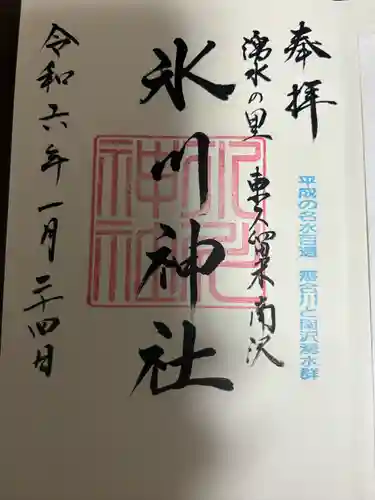 奉拝
平成の名水百選 落合川と南沢湧水群
湧水の里 東久留米 南沢
氷川神社
氷川神社
令和六年一月二十四日